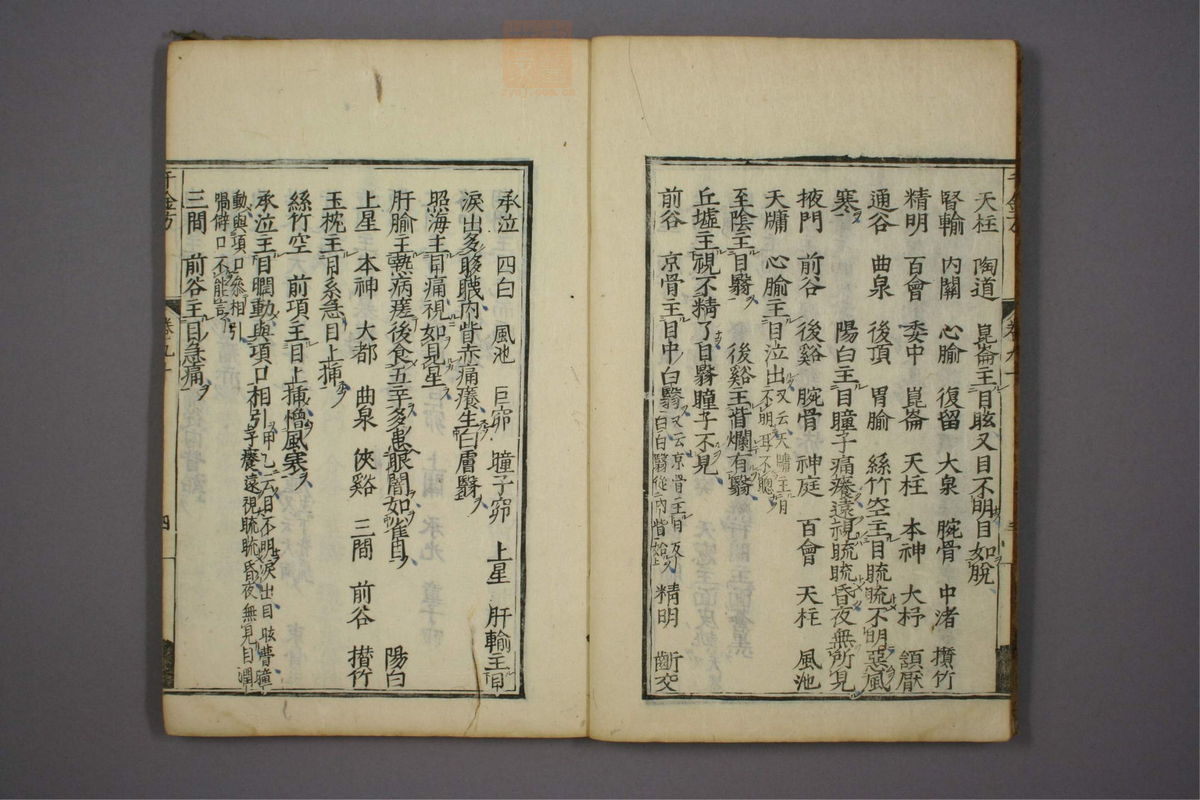 天柱 陶道 崑崙主目眩又目不明目如脫
腎輸 内關 心腧 復留 大泉 腕骨 中渚 攢竹
精明 百會 委中 崑崙 天柱 本神 大杼 頷厭
通谷 曲泉 後頂 胃腧 絲竹空主目䀮䀮不明惡風
寒 陽白主目瞳子痛癢遠視䀮䀮昏夜無所見
掖門 前谷 後谿 腕骨 神庭 百會 天柱 風池
天牖 心腧主目泣出又云天牖主目不明耳不聰
至陰主目翳 後谿主眥爛有翳
丘墟主視不精了目翳瞳子不見
前谷 京骨主目中白翳又云京骨主目反白白翳從内眥始 精明 齗交
承泣 四白 風池 巨窌 瞳子窌 上星 肝輸主目
淚出多眵䁾内眥赤痛癢生白膚翳
照海主目痛視如見星
肝腧主熱病瘥後食五辛多患眼闇如雀目
上星 本神 大都 曲泉 俠谿 三間 前谷 攅竹 陽白
玉枕主目系急目上揷
絲竹空 前頂主目上揷憎風寒
承泣主目瞤動與項口相引甲乙云目不明淚出目眩瞢瞳子癢遠視䀮䀮昏夜無見目瞤
動與項口參相引喎僻口不能言
三間 前谷主目急痛
四